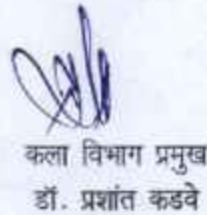 कला विभाग प्रमुख
डॉ. प्रशांत कडवे